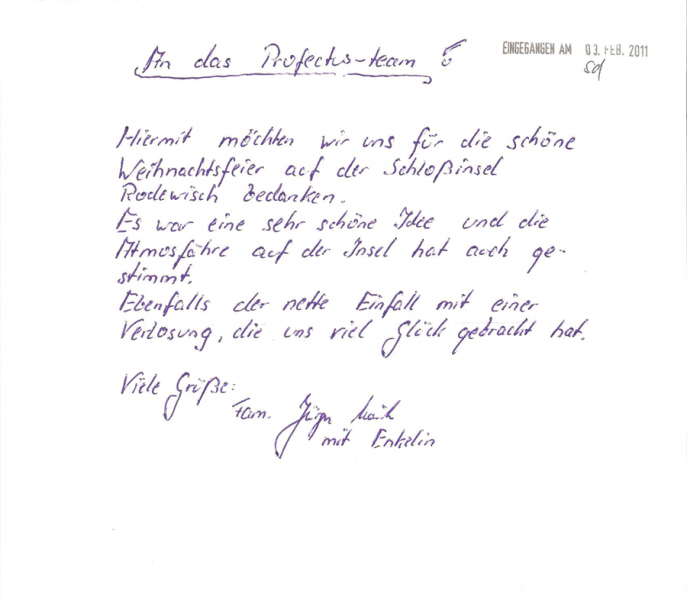 An das Profectus-team
EINGEGANGEN AM 03. FEB. 2011
sd
Hiermit möchten wir uns für die schöne
Weihnachtsfeier auf der Schloßinsel
Rodewisch bedanken.
Es war eine sehr schöne Idee und die
Atmosfähre auf der Insel hat auch ge-
stimmt.
Ebenfalls der nette Einfall mit einer
Verlosung, die uns viel Glück gebracht hat.
Viele Grüße:
Fam. Jürgen
mit Enkelin